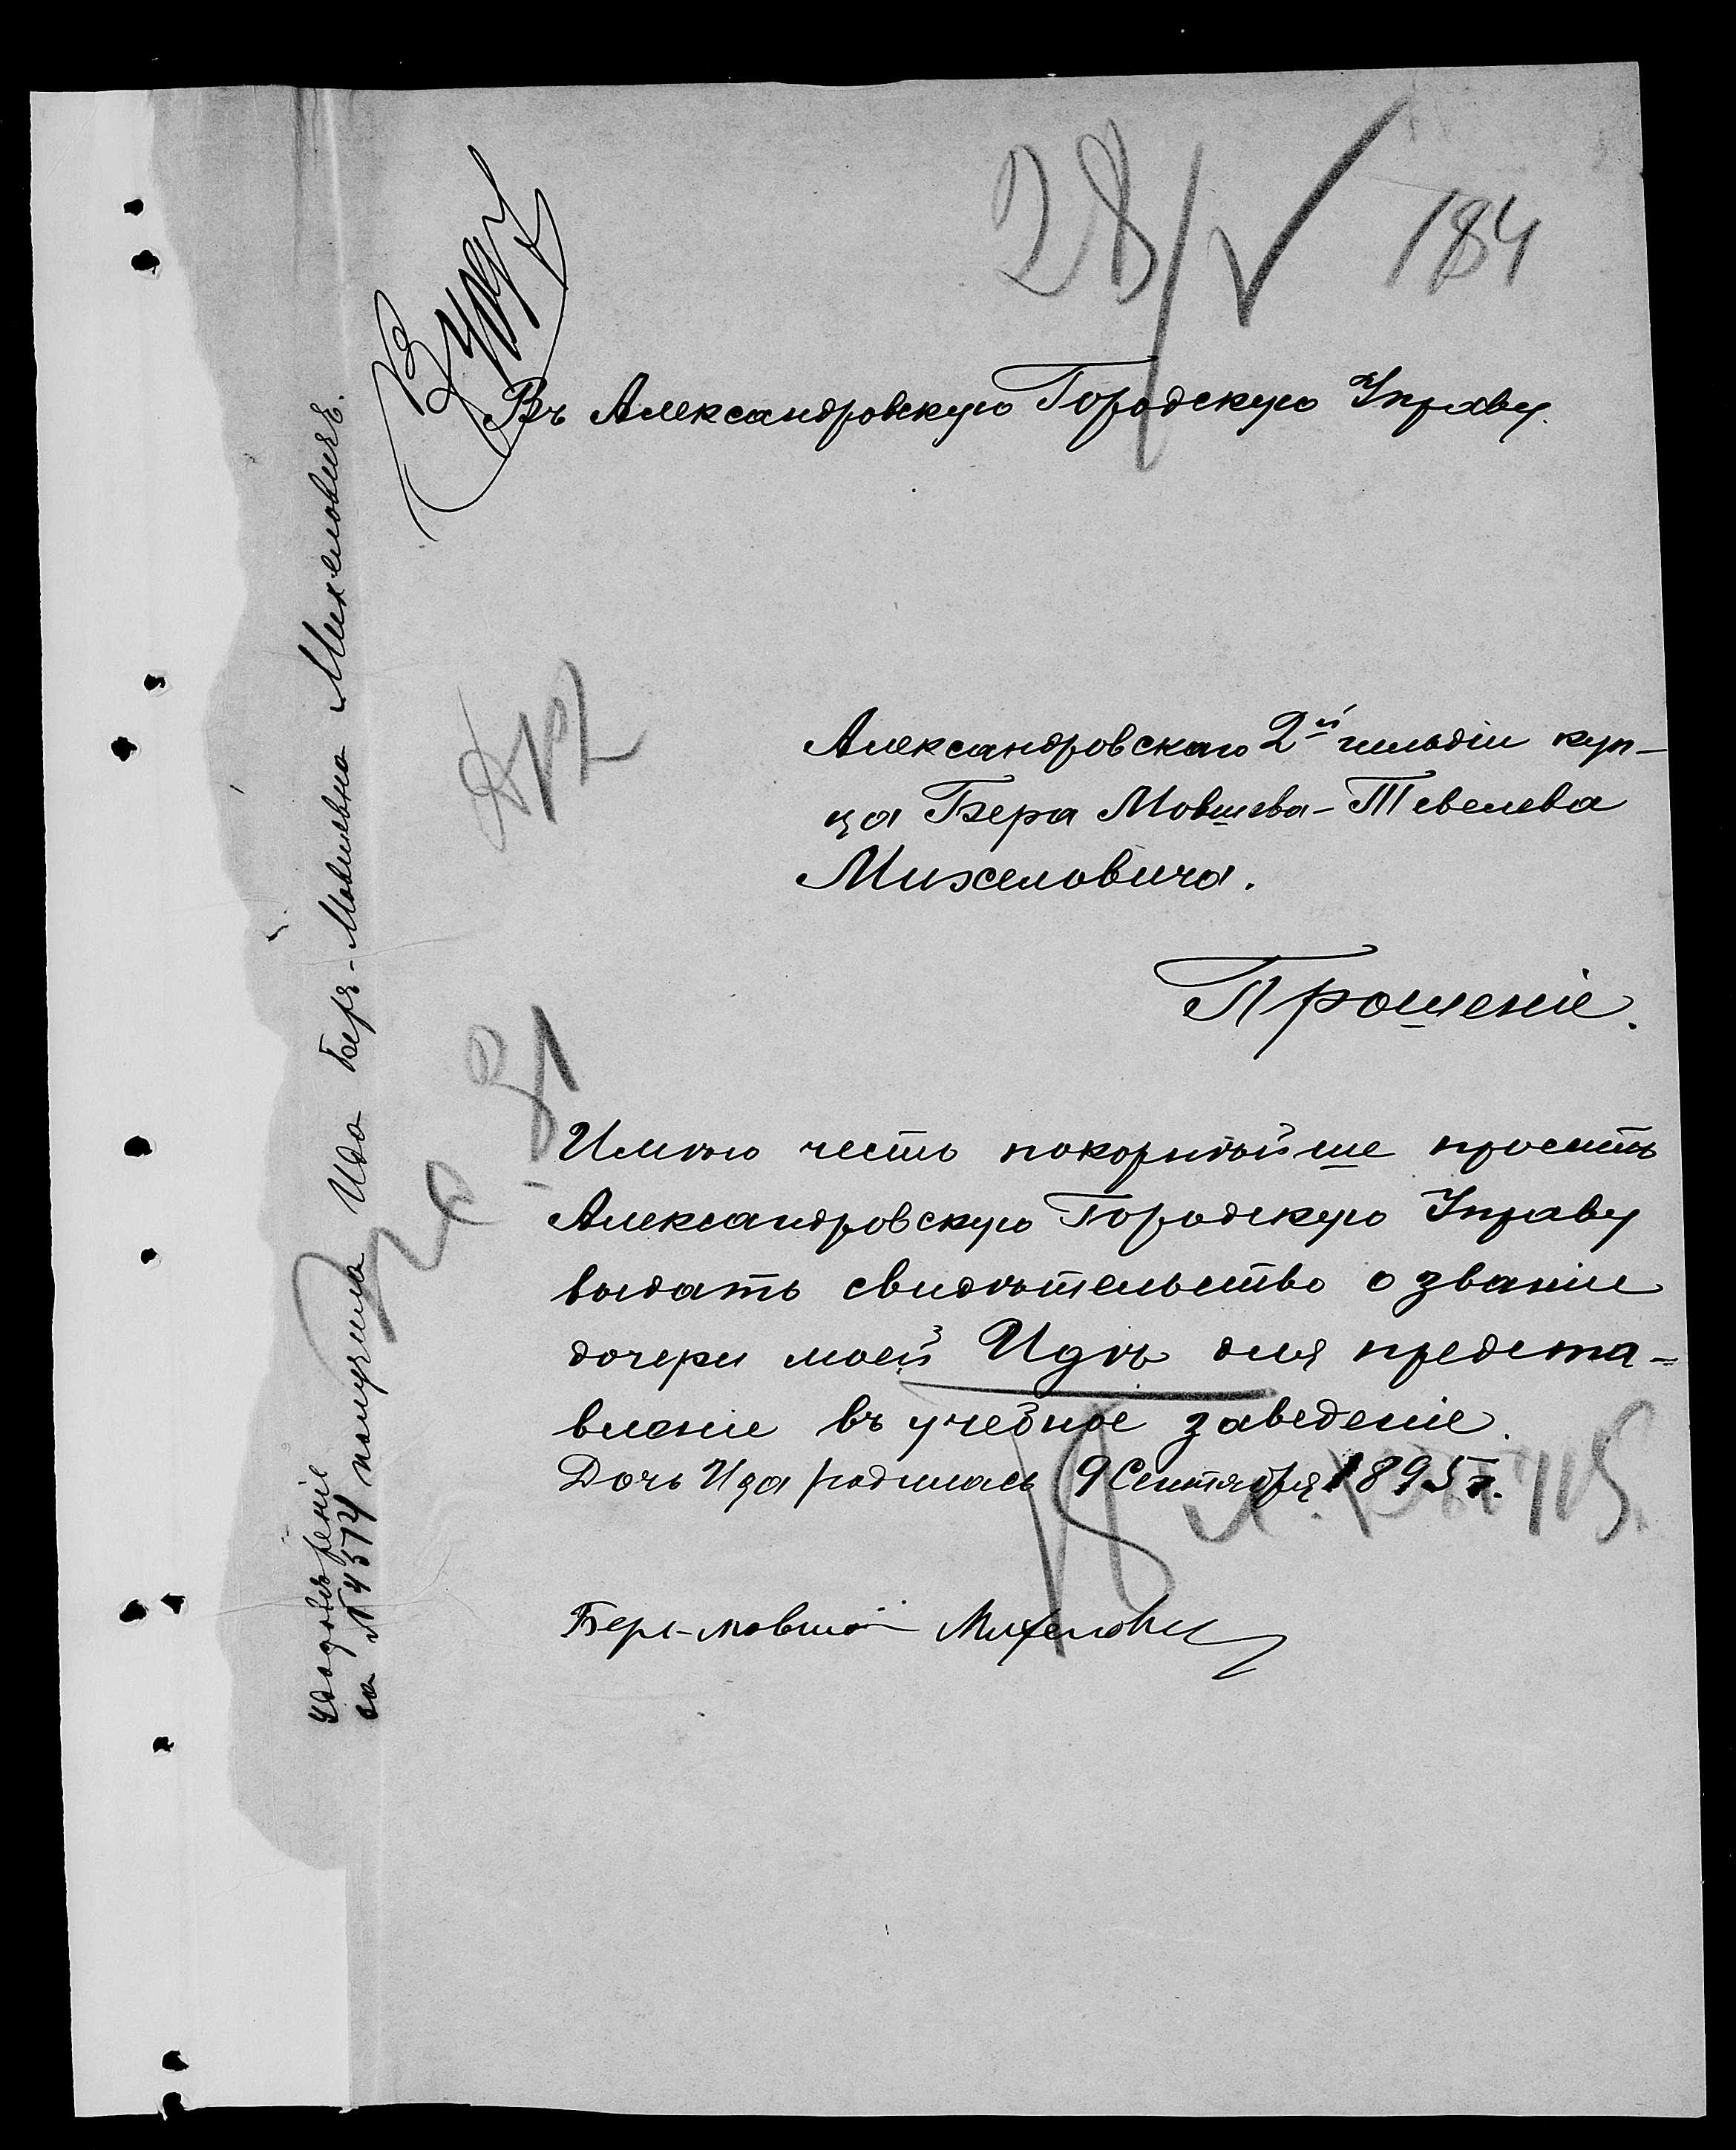 28/V
184
Въ Александровскую Городскую Управу.
Александровскаго 2й гильдіи куп-
ца Бера Мовшева-Тевелева
Михеловича.
Прошеніе.
Имѣю честь покорнѣйше просить
Александровскую Городскую Управу
выдать свидѣтельство о званіи
дочери моей Идѣ для предста-
вленіе въ учебное заведеніе.
Дочь Ида родилась 9 Сентября 1895 г.
Беръ-Мовша Михелович
Удостовѣреніе
за № 4574 получила Ида Беръ-Мовшевна Михеловичъ.